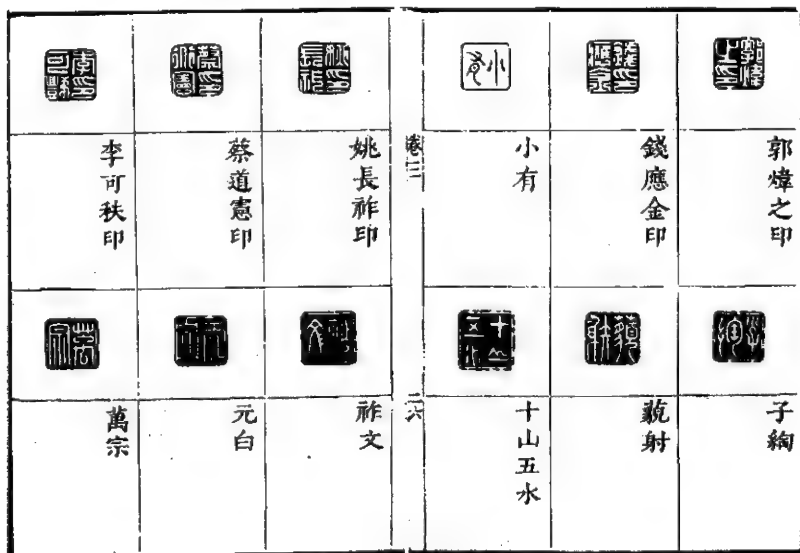 郭煒之印
錢應金印
小有
子綯
藐射
十山五水
卷三
二六
姚長祚印
蔡道憲印
李可秩印
祚文
元白
萬宗